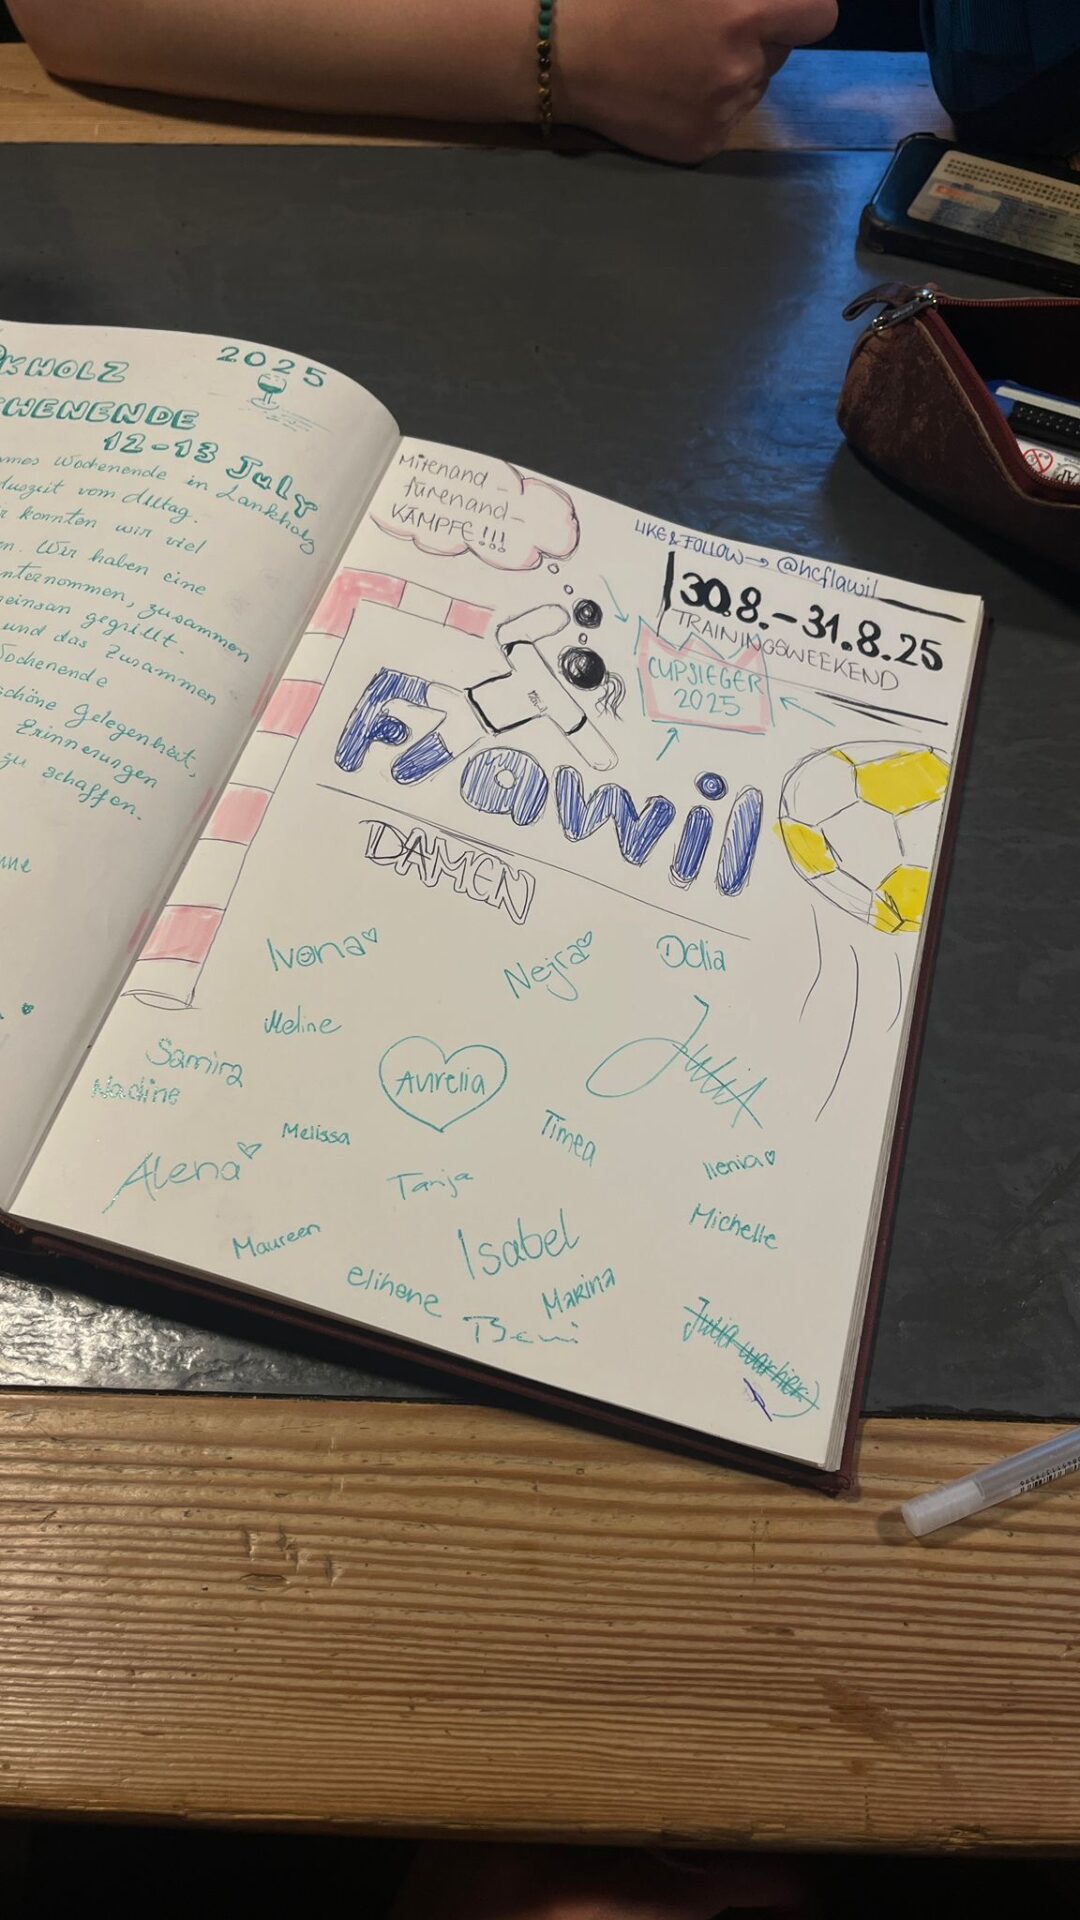 2025
KHOLZ
HENENDE
12-13 July
mes Wochenende in Lankholz
Auszeit vom Alltag.
r konnten wir viel
en. Wir haben eine
nternommen, zusammen
meinsam gegrillt.
und das Zusammen
Wochenende
schöne Gelegenheit,
Erinnerungen
zu schaffen.
nne
Mitenand-
fürenand-
KÄMPFE!!!
LIKE & FOLLOW → @hcflawil
30.8.-31.8.25
TRAININGSWEEKEND
CUPSIEGER
2025
Flawil
DAMEN
Ivona
Nejra
Delia
Meline
Samira
Nadine
Aurelia
JuliA
Melissa
Timea
Ilenia
Alena
Tanja
Michelle
Maureen
Isabel
elihene
Marina
Beni
Julia war hier:)